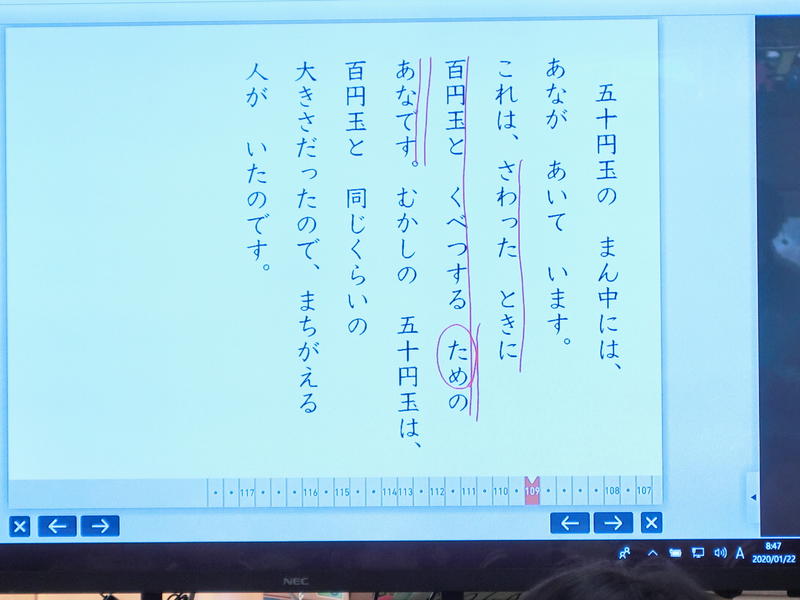 五十円玉の　まん中には、
あなが　あいて　います。
これは、さわった　ときに
百円玉と　くべつする　ための
あなです。むかしの　五十円玉は、
百円玉と　同じくらいの
大きさだったので、まちがえる
人が　いたのです。
117 116 115 114 113 112 111 110 109 108 107
A
8:47
2020/01/22
NEC